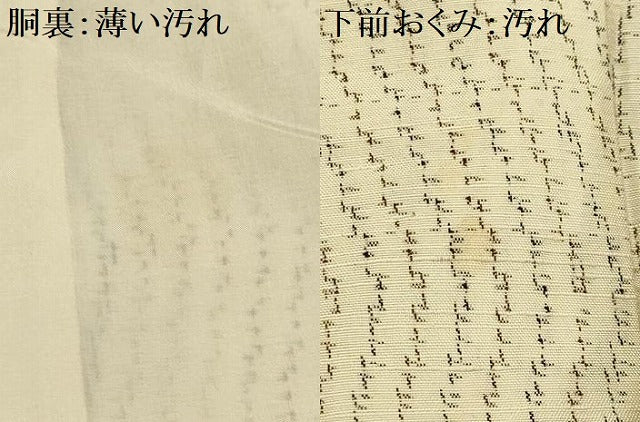 胴裏：薄い汚れ
下前おくみ：汚れ